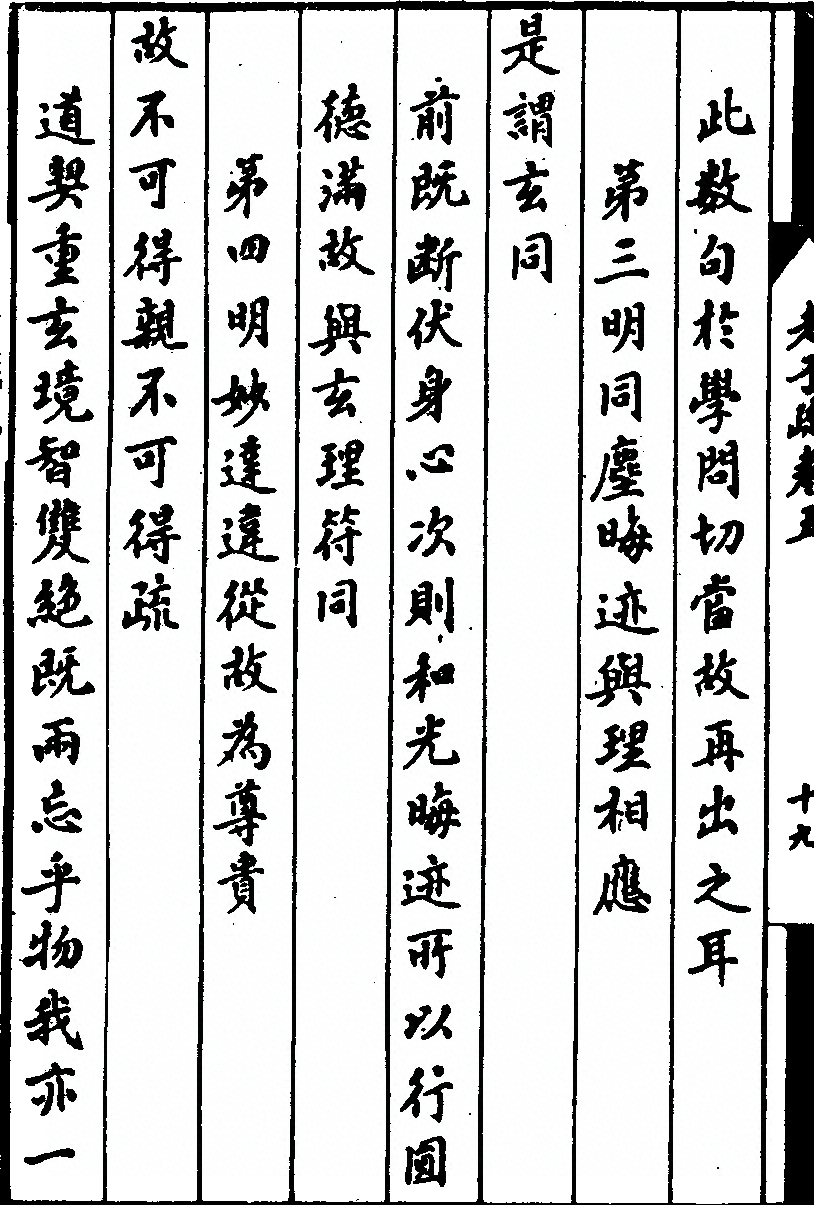 老子疏卷五
十九
此数句於學問切當故再出之耳
第三明同塵晦迹與理相應
是謂玄同
前既断伏身心次則和光晦迹所以行圎
德滿故與玄理符同
第四明妙達違從故為尊貴
故不可得親不可得疏
道契重玄境智雙絶既兩忘乎物我亦一